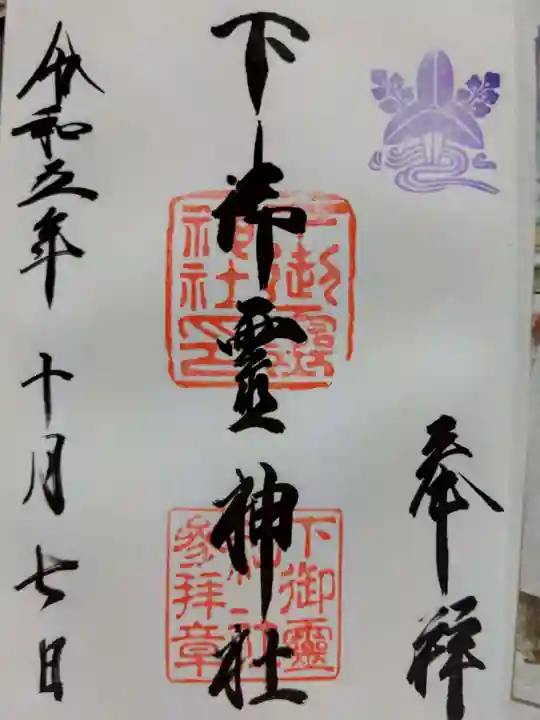 奉拝
下御靈神社
下御靈神社印
下御靈神社参拝章
令和五年十月七日